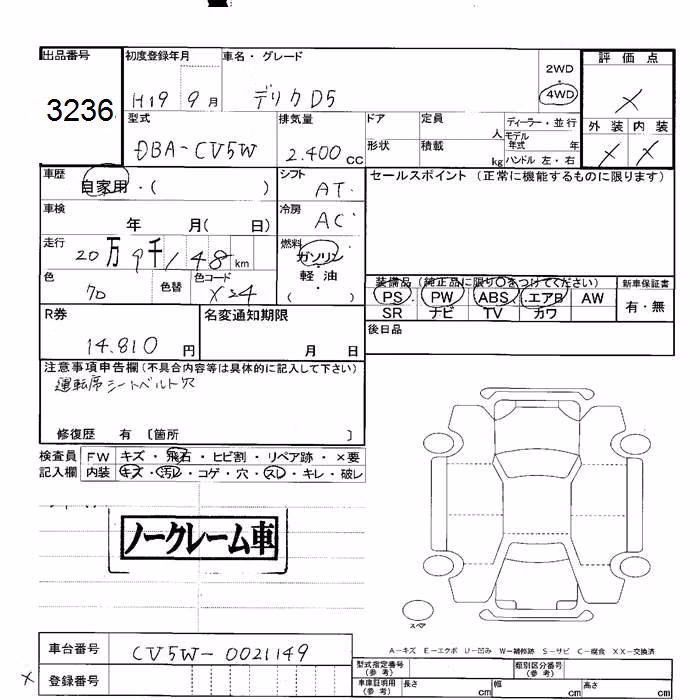 出品番号 初度登録年月 車名・グレード 2WD 評価点
3236 H19 9月 デリカD5 ・ 4WD ×
型式 排気量 ドア 定員 ディーラー・並行 外装 内装
DBA-CV5W 2.400CC 形状 人 モデル年式 年 × ×
積載 kg ハンドル 左・右
車歴 自家用・( ) シフト AT セールスポイント (正常に機能するものに限ります)
車検 年 月( 日) 冷房 AC
走行 20万9千148km 燃料 ガソリン・軽油 ( )
色 色替 色コード 装備品(純正品に限り○をつけてください) 新車保証書
PS・PW・ABS・エアB AW 有・無
SR ナビ TV カワ
R券 名変通知期限 後日品
14.810円 月 日
注意事項申告欄(不具合内容等は具体的に記入して下さい)
運転席シートベルト穴
修復歴 有 〔箇所 〕
検査員 FW キズ・飛石・ヒビ割・リペア跡・×要
記入欄 内装 キズ・汚れ・コゲ・穴・スレ・キレ・破レ
ノークレーム車
スペア
A-キズ E-エクボ U-凹み W-補修跡 S-サビ C-腐食 XX-交換済
車台番号 CV5W-0021149 型式指定番号(参考) 類別区分番号(参考)
× 登録番号 車庫証明用(参考) 長さ cm 幅 cm 高さ cm